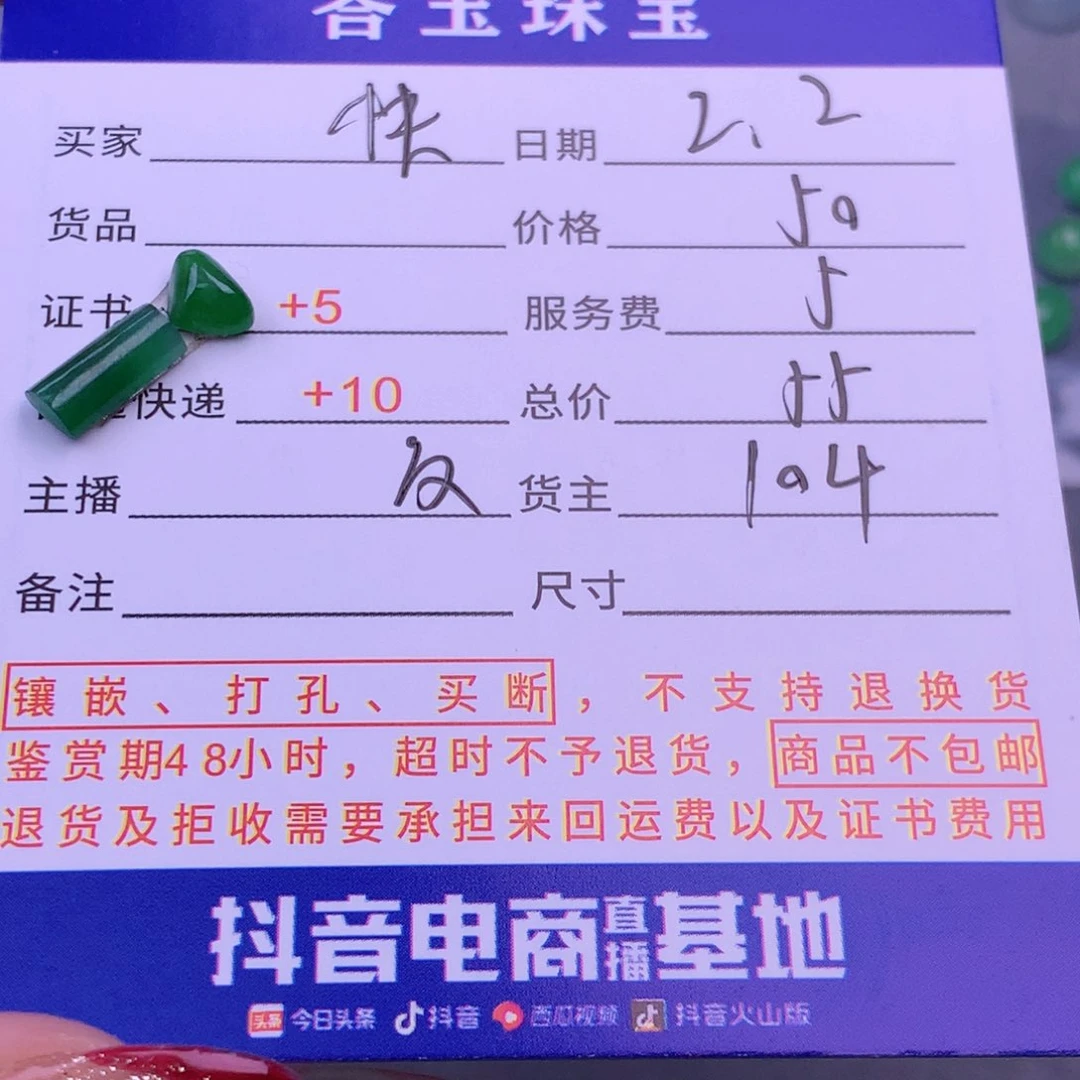 合玉珠宝
买家 快 日期 2.2
货品 价格 50
证书 +5 服务费 5
快递 +10 总价 55
主播 货主 104
备注 尺寸
镶嵌、打孔、买断，不支持退换货
鉴赏期48小时，超时不予退货，商品不包邮
退货及拒收需要承担来回运费以及证书费用
抖音电商直播基地
头条 今日头条 抖音 西瓜视频 抖音火山版